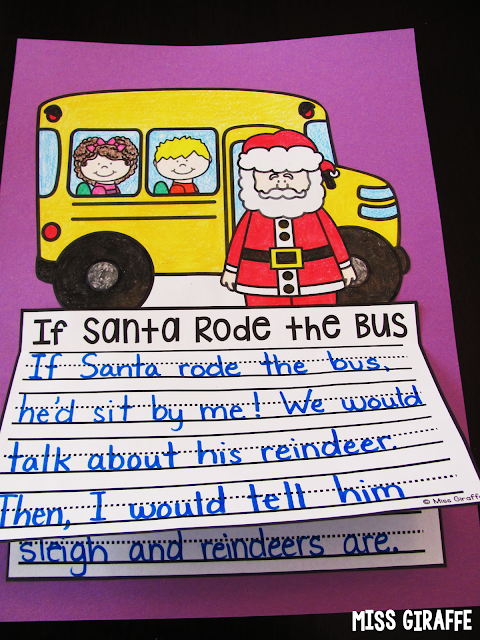 If Santa Rode the Bus
If Santa rode the bus,
he'd sit by me! We would
talk about his reindeer.
Then, I would tell him
© Miss Giraffe
sleigh and reindeers are.
MISS GIRAFFE